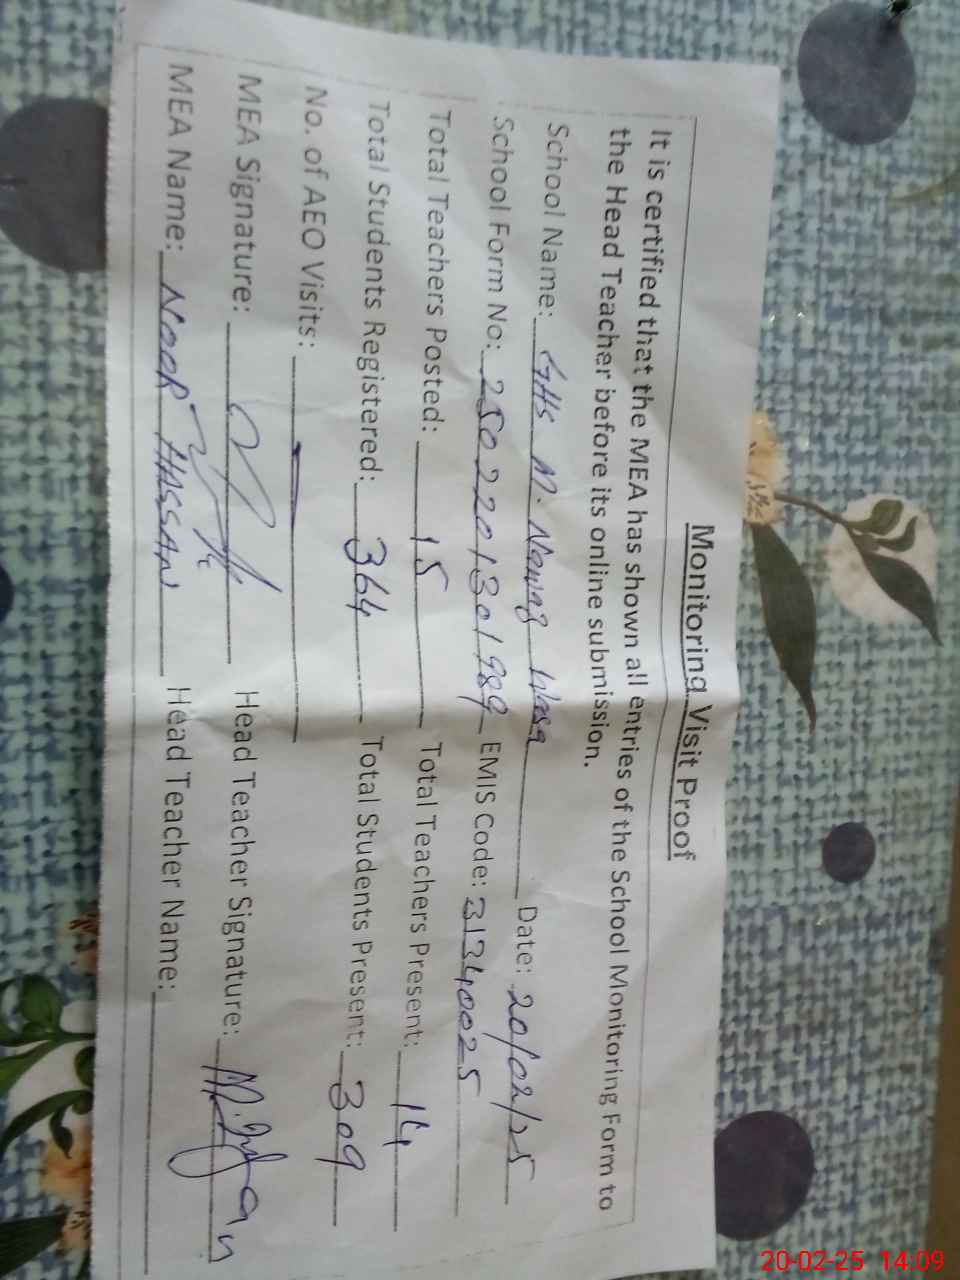 Monitoring Visit Proof
It is certified that the MEA has shown all entries of the School Monitoring Form to
the Head Teacher before its online submission.
School Name: GHS M. Nawaz Wasa Date: 20/02/25
School Form No: 2502201301989 EMIS Code: 31340025
Total Teachers Posted: 15 Total Teachers Present: 14
Total Students Registered: 364 Total Students Present: 309
No. of AEO Visits: —
MEA Signature: Head Teacher Signature:
MEA Name: NOOR HASSAN Head Teacher Name:
20-02-25 14:09